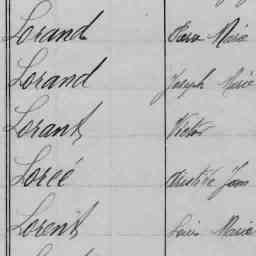 Lorand Marie
Lorand Joseph Marie
Lorant Victor
Lorée Aristide Jean
Lorent Louis Marie